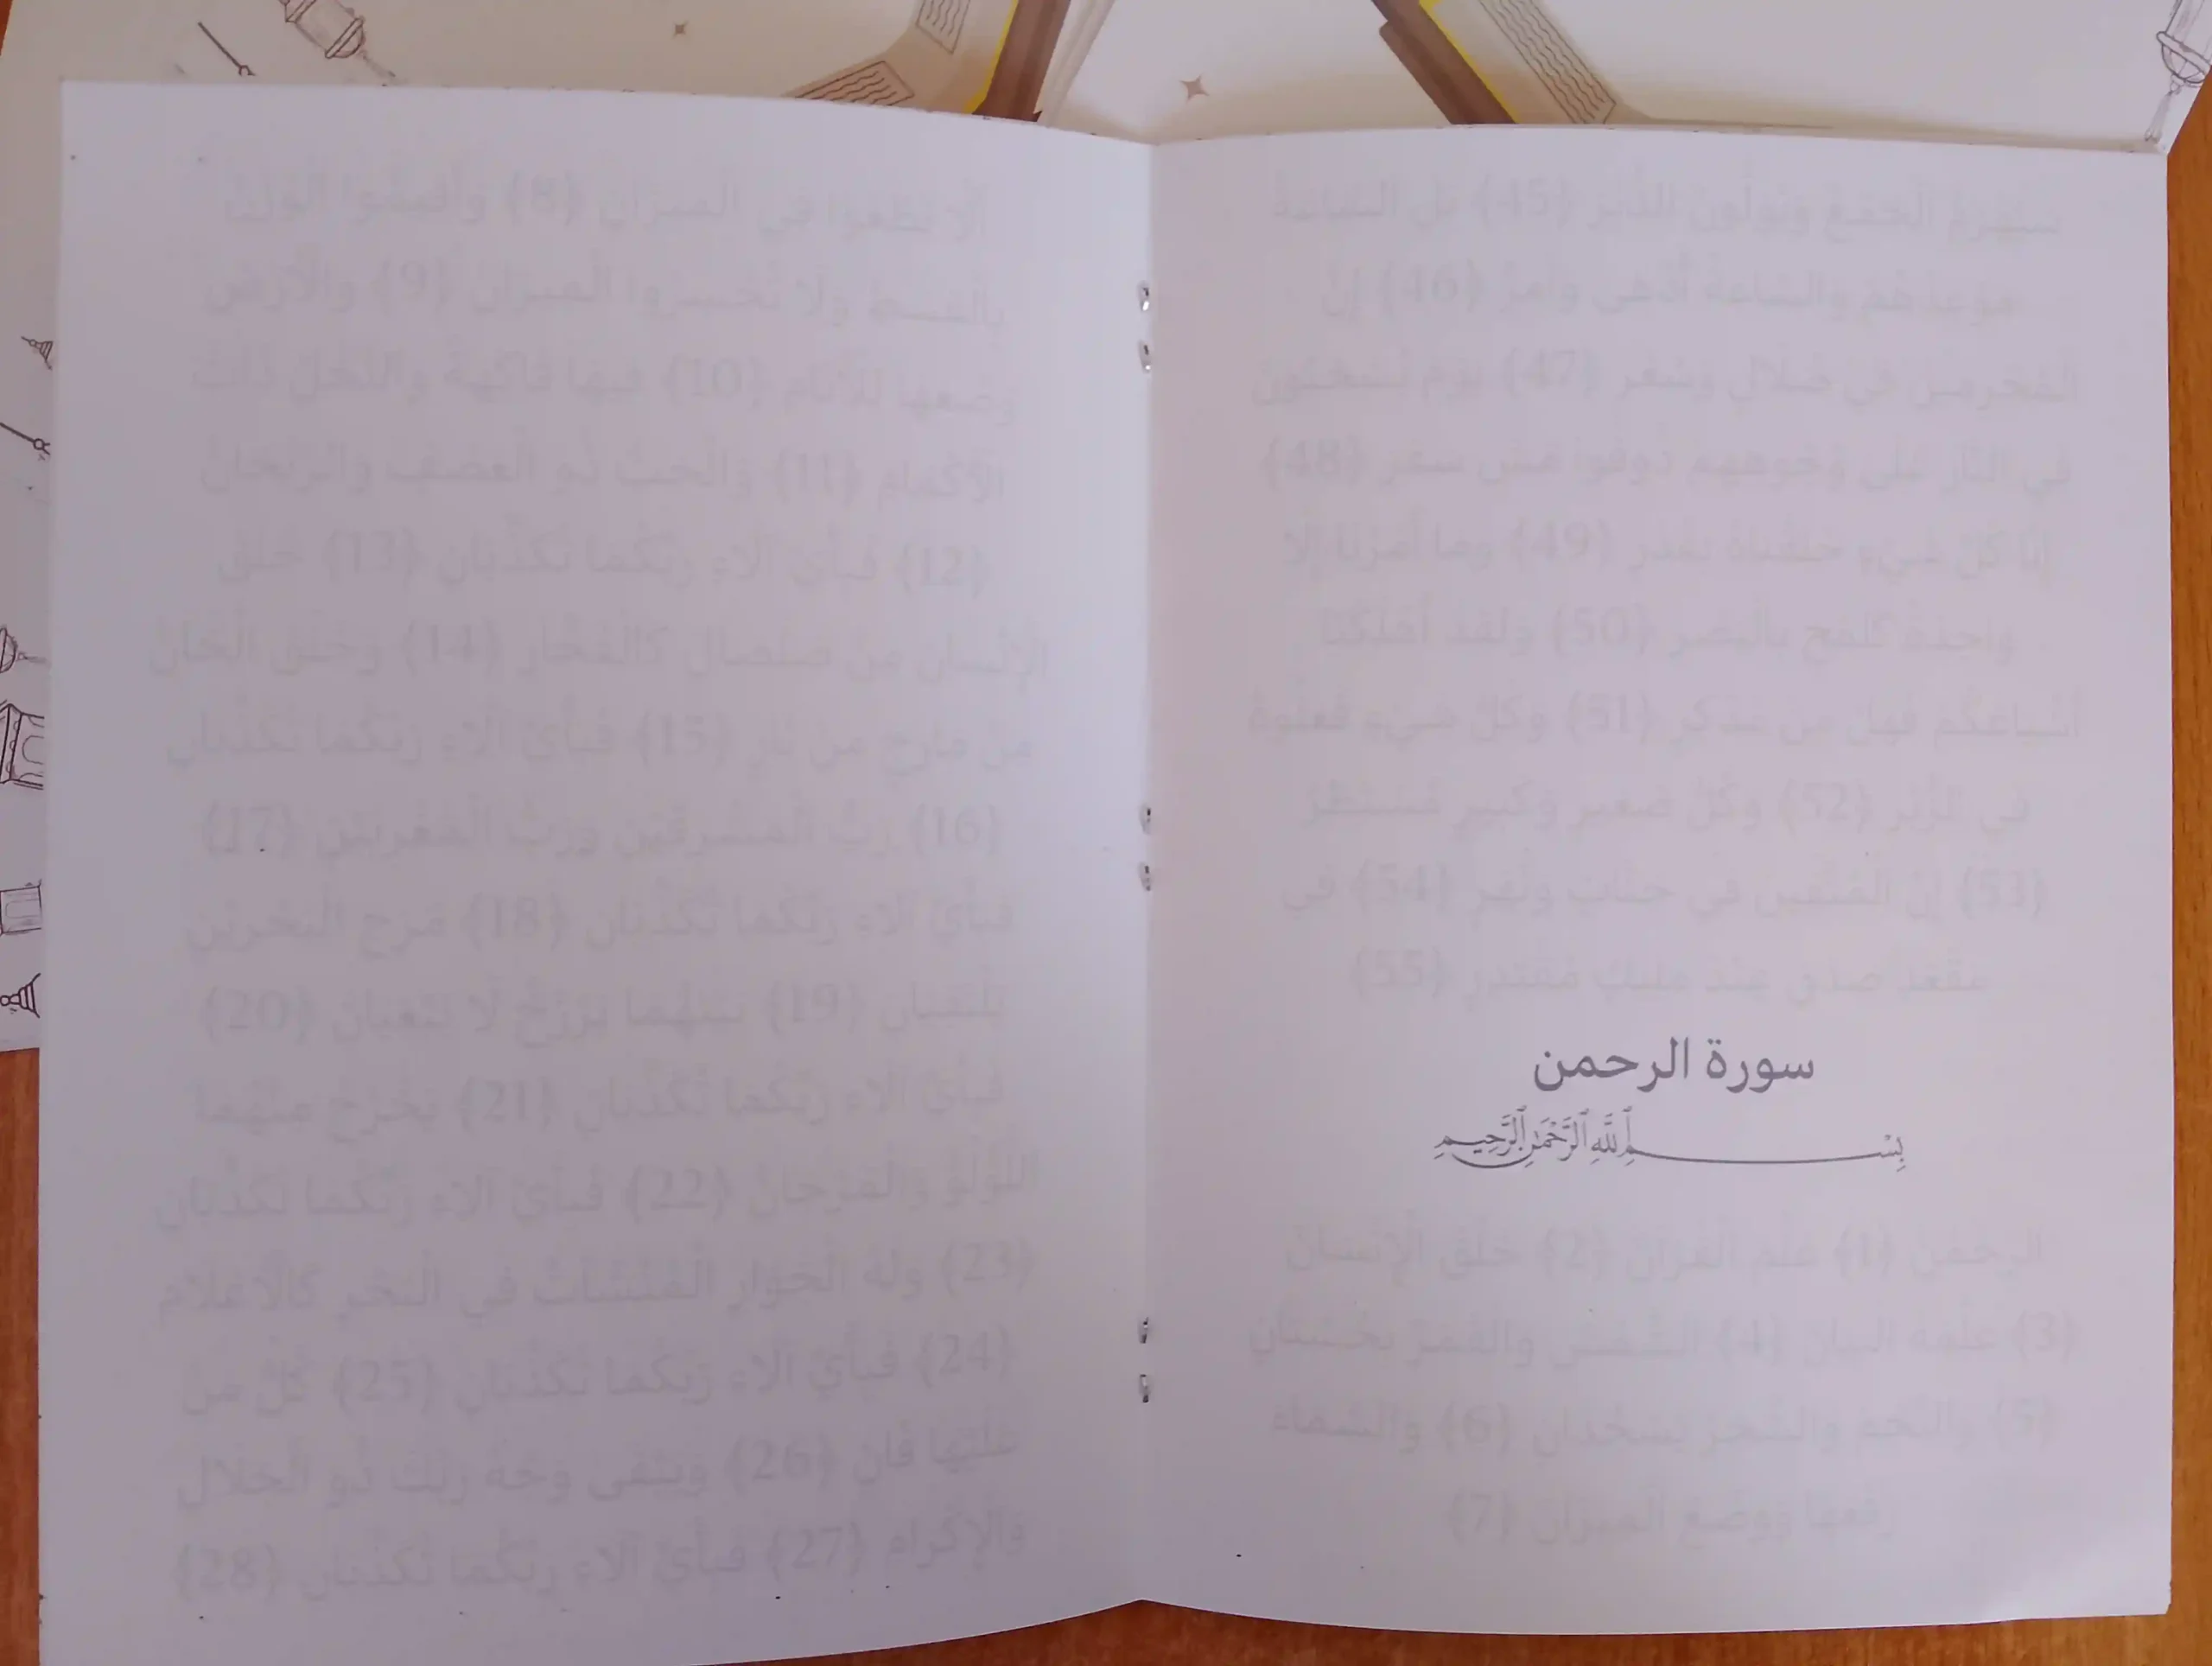 سَيُهْزَمُ الْجَمْعُ وَيُوَلُّونَ الدُّبُرَ (45) بَلِ السَّاعَةُ
مَوْعِدُهُمْ وَالسَّاعَةُ أَدْهَى وَأَمَرُّ (46) إِنَّ
الْمُجْرِمِينَ فِي ضَلَالٍ وَسُعُرٍ (47) يَوْمَ يُسْحَبُونَ
فِي النَّارِ عَلَى وُجُوهِهِمْ ذُوقُوا مَسَّ سَقَرَ (48)
إِنَّا كُلَّ شَيْءٍ خَلَقْنَاهُ بِقَدَرٍ (49) وَمَا أَمْرُنَا إِلَّا
وَاحِدَةٌ كَلَمْحٍ بِالْبَصَرِ (50) وَلَقَدْ أَهْلَكْنَا
أَشْيَاعَكُمْ فَهَلْ مِنْ مُدَّكِرٍ (51) وَكُلُّ شَيْءٍ فَعَلُوهُ
فِي الزُّبُرِ (52) وَكُلُّ صَغِيرٍ وَكَبِيرٍ مُسْتَطَرٌ
(53) إِنَّ الْمُتَّقِينَ فِي جَنَّاتٍ وَنَهَرٍ (54) فِي
مَقْعَدِ صِدْقٍ عِنْدَ مَلِيكٍ مُقْتَدِرٍ (55)
سورة الرحمن
بِسْمِ ٱللَّهِ ٱلرَّحْمَٰنِ ٱلرَّحِيمِ
الرَّحْمَنُ (1) عَلَّمَ الْقُرْآنَ (2) خَلَقَ الْإِنْسَانَ
(3) عَلَّمَهُ الْبَيَانَ (4) الشَّمْسُ وَالْقَمَرُ بِحُسْبَانٍ
(5) وَالنَّجْمُ وَالشَّجَرُ يَسْجُدَانِ (6) وَالسَّمَاءَ
رَفَعَهَا وَوَضَعَ الْمِيزَانَ (7)
أَلَّا تَطْغَوْا فِي الْمِيزَانِ (8) وَأَقِيمُوا الْوَزْنَ
بِالْقِسْطِ وَلَا تُخْسِرُوا الْمِيزَانَ (9) وَالْأَرْضَ
وَضَعَهَا لِلْأَنَامِ (10) فِيهَا فَاكِهَةٌ وَالنَّخْلُ ذَاتُ
الْأَكْمَامِ (11) وَالْحَبُّ ذُو الْعَصْفِ وَالرَّيْحَانُ
(12) فَبِأَيِّ آلَاءِ رَبِّكُمَا تُكَذِّبَانِ (13) خَلَقَ
الْإِنْسَانَ مِنْ صَلْصَالٍ كَالْفَخَّارِ (14) وَخَلَقَ الْجَانَّ
مِنْ مَارِجٍ مِنْ نَارٍ (15) فَبِأَيِّ آلَاءِ رَبِّكُمَا تُكَذِّبَانِ
(16) رَبُّ الْمَشْرِقَيْنِ وَرَبُّ الْمَغْرِبَيْنِ (17)
فَبِأَيِّ آلَاءِ رَبِّكُمَا تُكَذِّبَانِ (18) مَرَجَ الْبَحْرَيْنِ
يَلْتَقِيَانِ (19) بَيْنَهُمَا بَرْزَخٌ لَا يَبْغِيَانِ (20)
فَبِأَيِّ آلَاءِ رَبِّكُمَا تُكَذِّبَانِ (21) يَخْرُجُ مِنْهُمَا
اللُّؤْلُؤُ وَالْمَرْجَانُ (22) فَبِأَيِّ آلَاءِ رَبِّكُمَا تُكَذِّبَانِ
(23) وَلَهُ الْجَوَارِ الْمُنْشَآتُ فِي الْبَحْرِ كَالْأَعْلَامِ
(24) فَبِأَيِّ آلَاءِ رَبِّكُمَا تُكَذِّبَانِ (25) كُلُّ مَنْ
عَلَيْهَا فَانٍ (26) وَيَبْقَى وَجْهُ رَبِّكَ ذُو الْجَلَالِ
وَالْإِكْرَامِ (27) فَبِأَيِّ آلَاءِ رَبِّكُمَا تُكَذِّبَانِ (28)